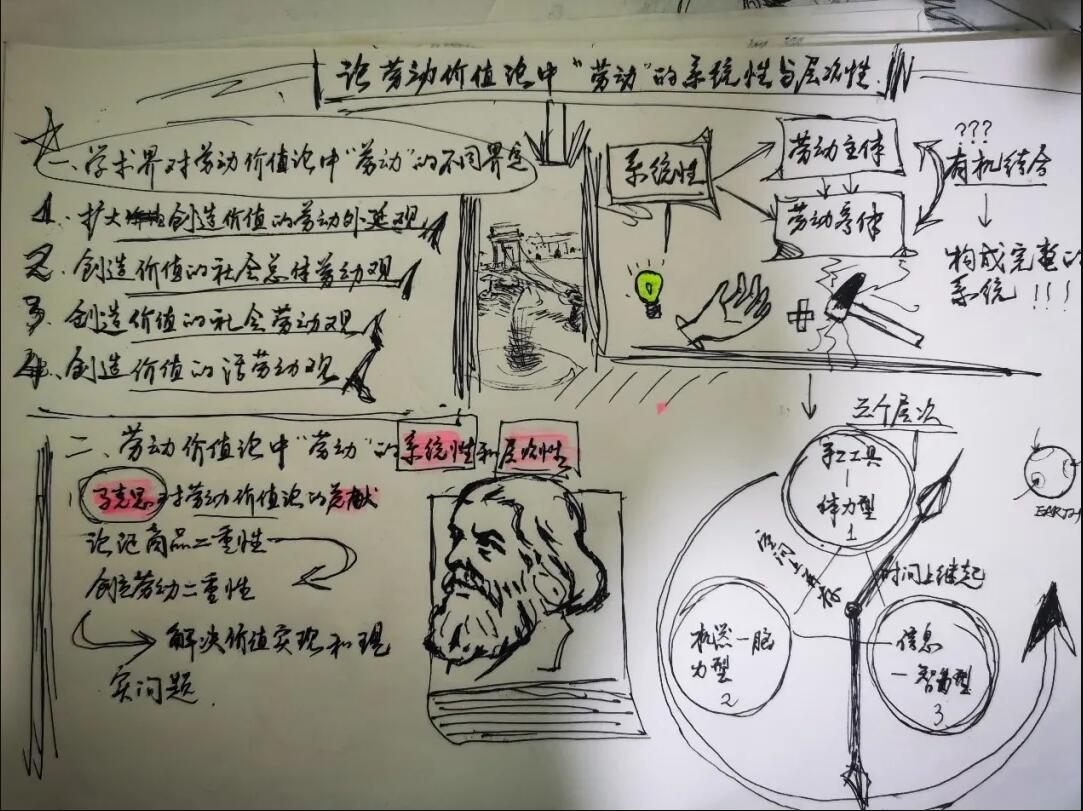 论劳动价值论中“劳动”的系统性与层次性
一、学术界对劳动价值论中“劳动”的不同界定
1、扩大创造价值的劳动外延观
2、创造价值的社会总体劳动观
3、创造价值的社会劳动观
4、创造价值的活劳动观
系统性
劳动主体
劳动客体
???
有机结合
构成完整的
系统!!!
二、劳动价值论中“劳动”的系统性和层次性
马克思对劳动价值论的贡献
论证商品二重性
创立劳动二重性
解决价值实现和现
实问题.
三个层次
手工工具
一
体力型
1
空间上并存
时间上继起
机器一脑
力型
2
信息
一智能型
3
EARTH